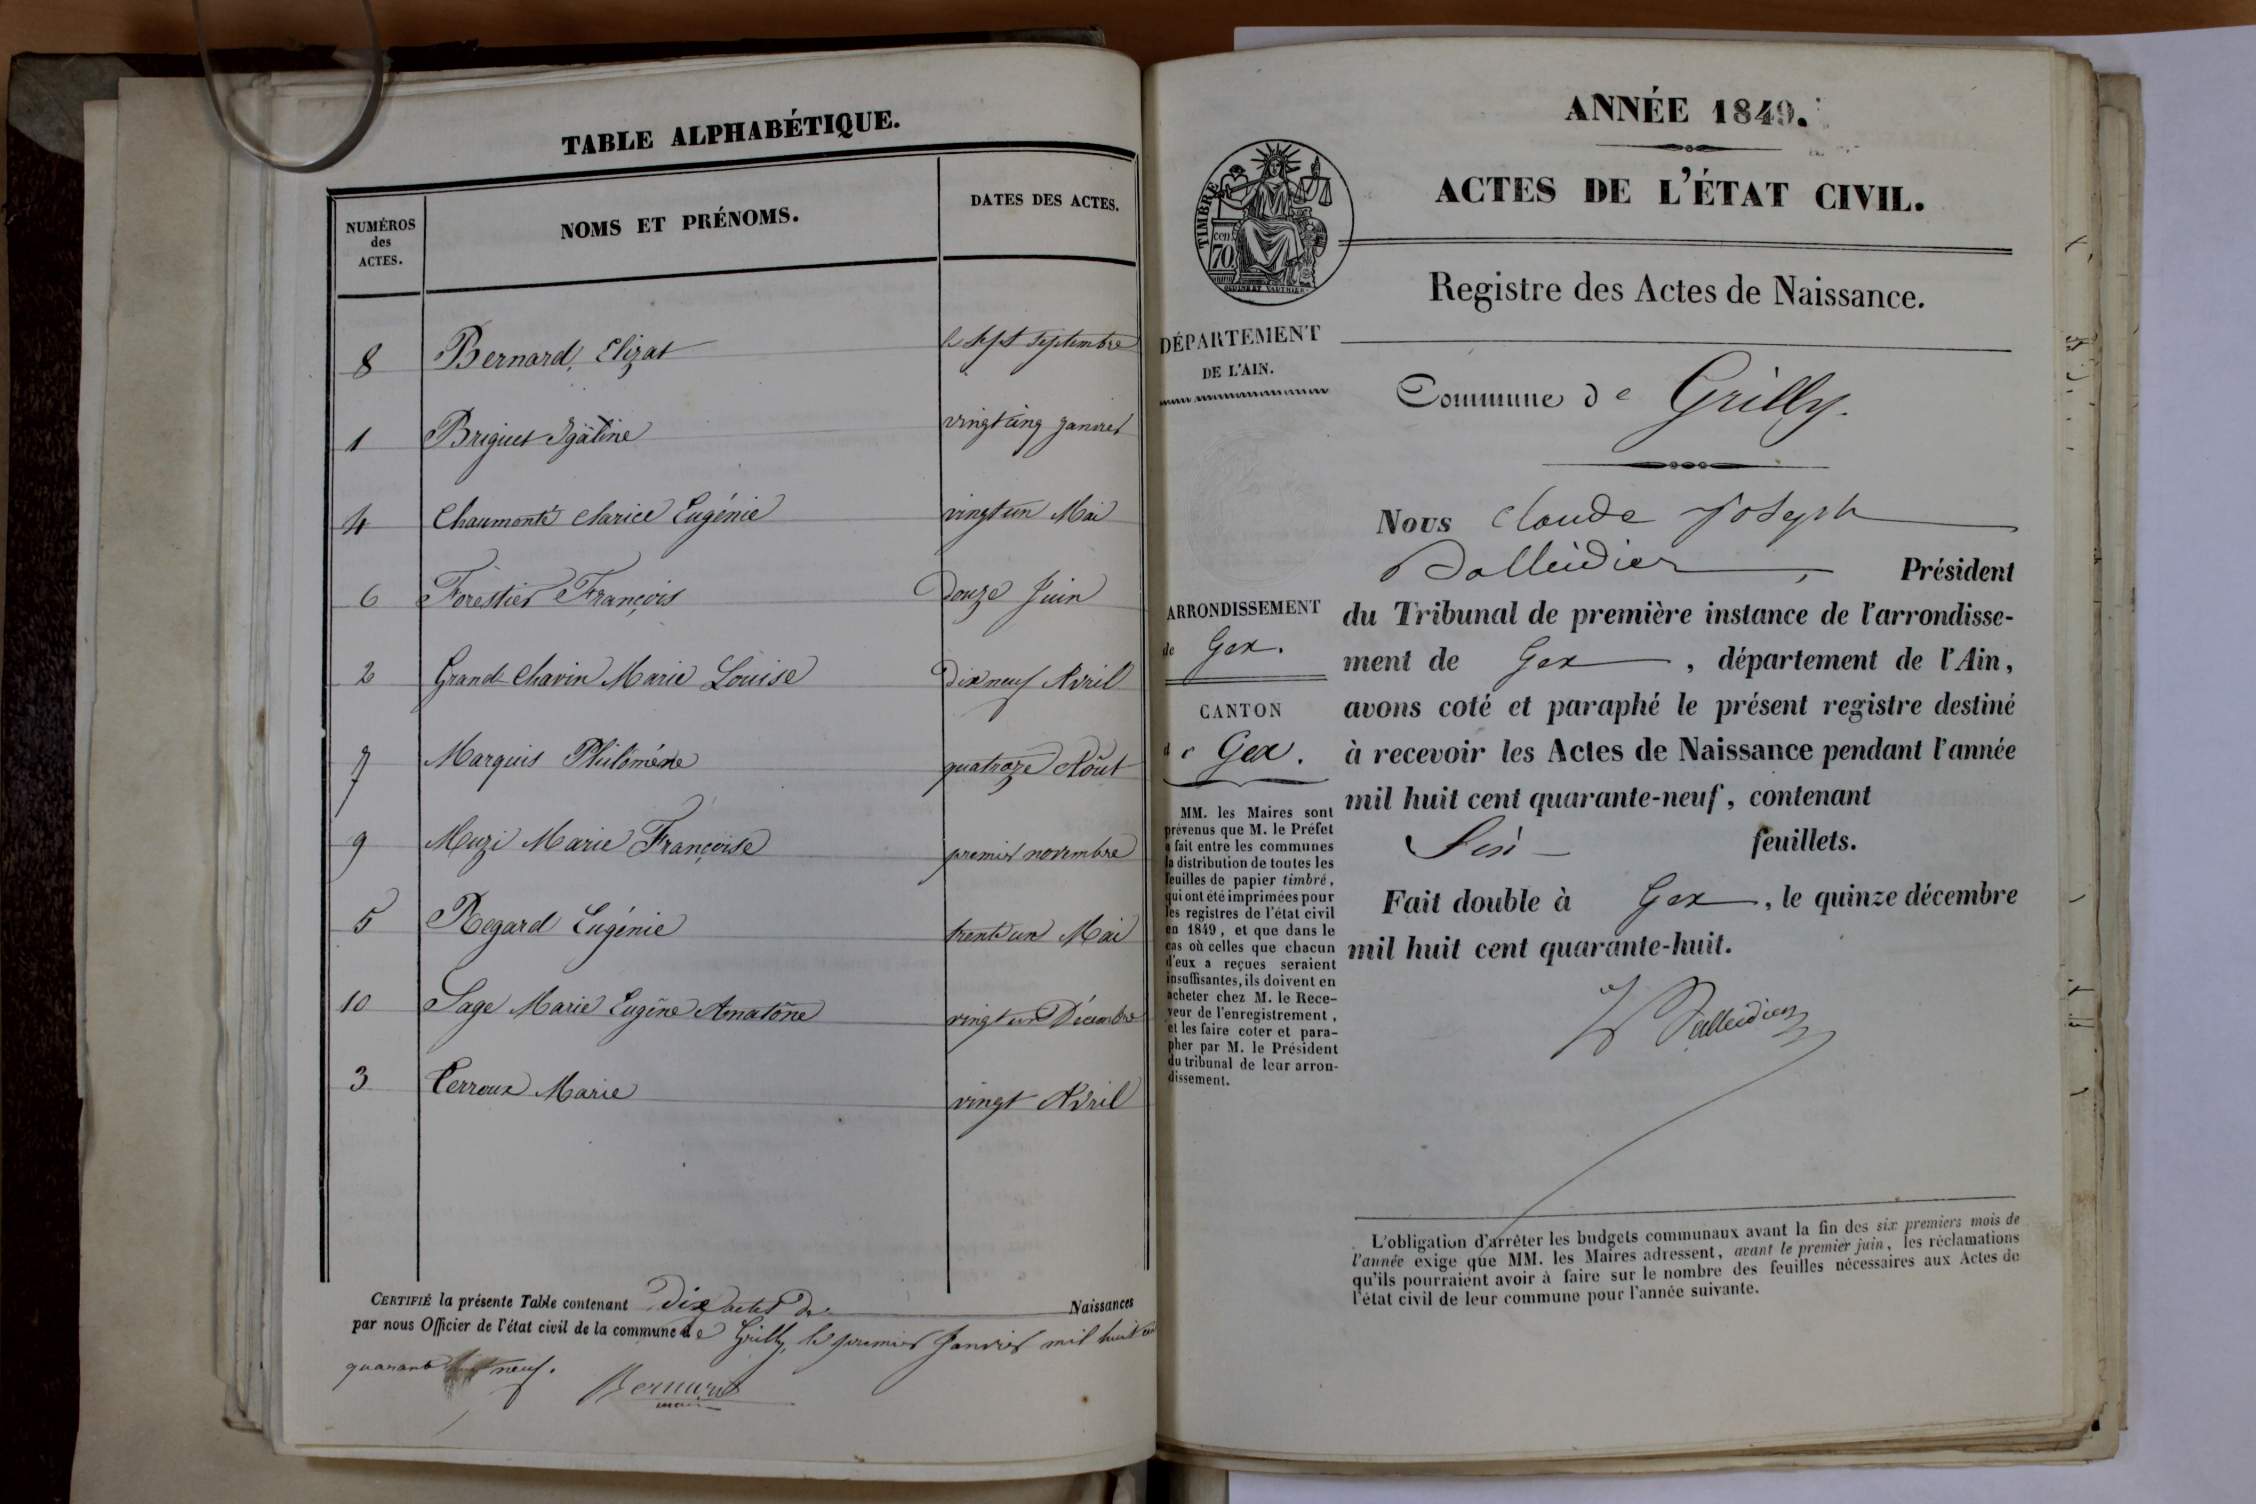 TABLE ALPHABÉTIQUE.
NUMÉROS
des
ACTES.
NOMS ET PRÉNOMS.
DATES DES ACTES.
8 Bernard, Elizat le sept septembre
1 Briguet vingt cinq janvier
4 Chaumonté Clarice Eugénie vingt un Mai
6 Forestier François Douze Juin
2 Grand-Chavin Marie Louise Dix neuf Avril
7 Marquis Philomène quatroze Août
9 Muzi Marie Françoise premier novembre
5 Regard Eugénie trente un Mai
10 Sage Marie Eugène vingt un Décembre
3 Perroux Marie vingt Avril
CERTIFIÉ la présente Table contenant Dix actes De Naissances
par nous Officier de l'état civil de la commune de Grilly, le premier Janvier mil huit cent
quarante neuf.
Bernard
maire
ANNÉE 1849.
ACTES DE L'ÉTAT CIVIL.
TIMBRE
70
Registre des Actes de Naissance.
DÉPARTEMENT
DE L'AIN.
Commune de Grilly.
ARRONDISSEMENT
de Gex.
CANTON
de Gex.
MM. les Maires sont
prévenus que M. le Préfet
a fait entre les communes
la distribution de toutes les
feuilles de papier timbré,
qui ont été imprimées pour
les registres de l'état civil
en 1849, et que dans le
cas où celles que chacun
d'eux a reçues seraient
insuffisantes, ils doivent en
acheter chez M. le Rece-
veur de l'enregistrement,
et les faire coter et para-
pher par M. le Président
du tribunal de leur arron-
dissement.
Nous Claude Joseph
Balleidier, Président
du Tribunal de première instance de l'arrondisse-
ment de Gex, département de l'Ain,
avons coté et paraphé le présent registre destiné
à recevoir les Actes de Naissance pendant l'année
mil huit cent quarante-neuf, contenant
Six feuillets.
Fait double à Gex, le quinze décembre
mil huit cent quarante-huit.
Balleidier
L'obligation d'arrêter les budgets communaux avant la fin des six premiers mois de
l'année exige que MM. les Maires adressent, avant le premier juin, les réclamations
qu'ils pourraient avoir à faire sur le nombre des feuilles nécessaires aux Actes de
l'état civil de leur commune pour l'année suivante.